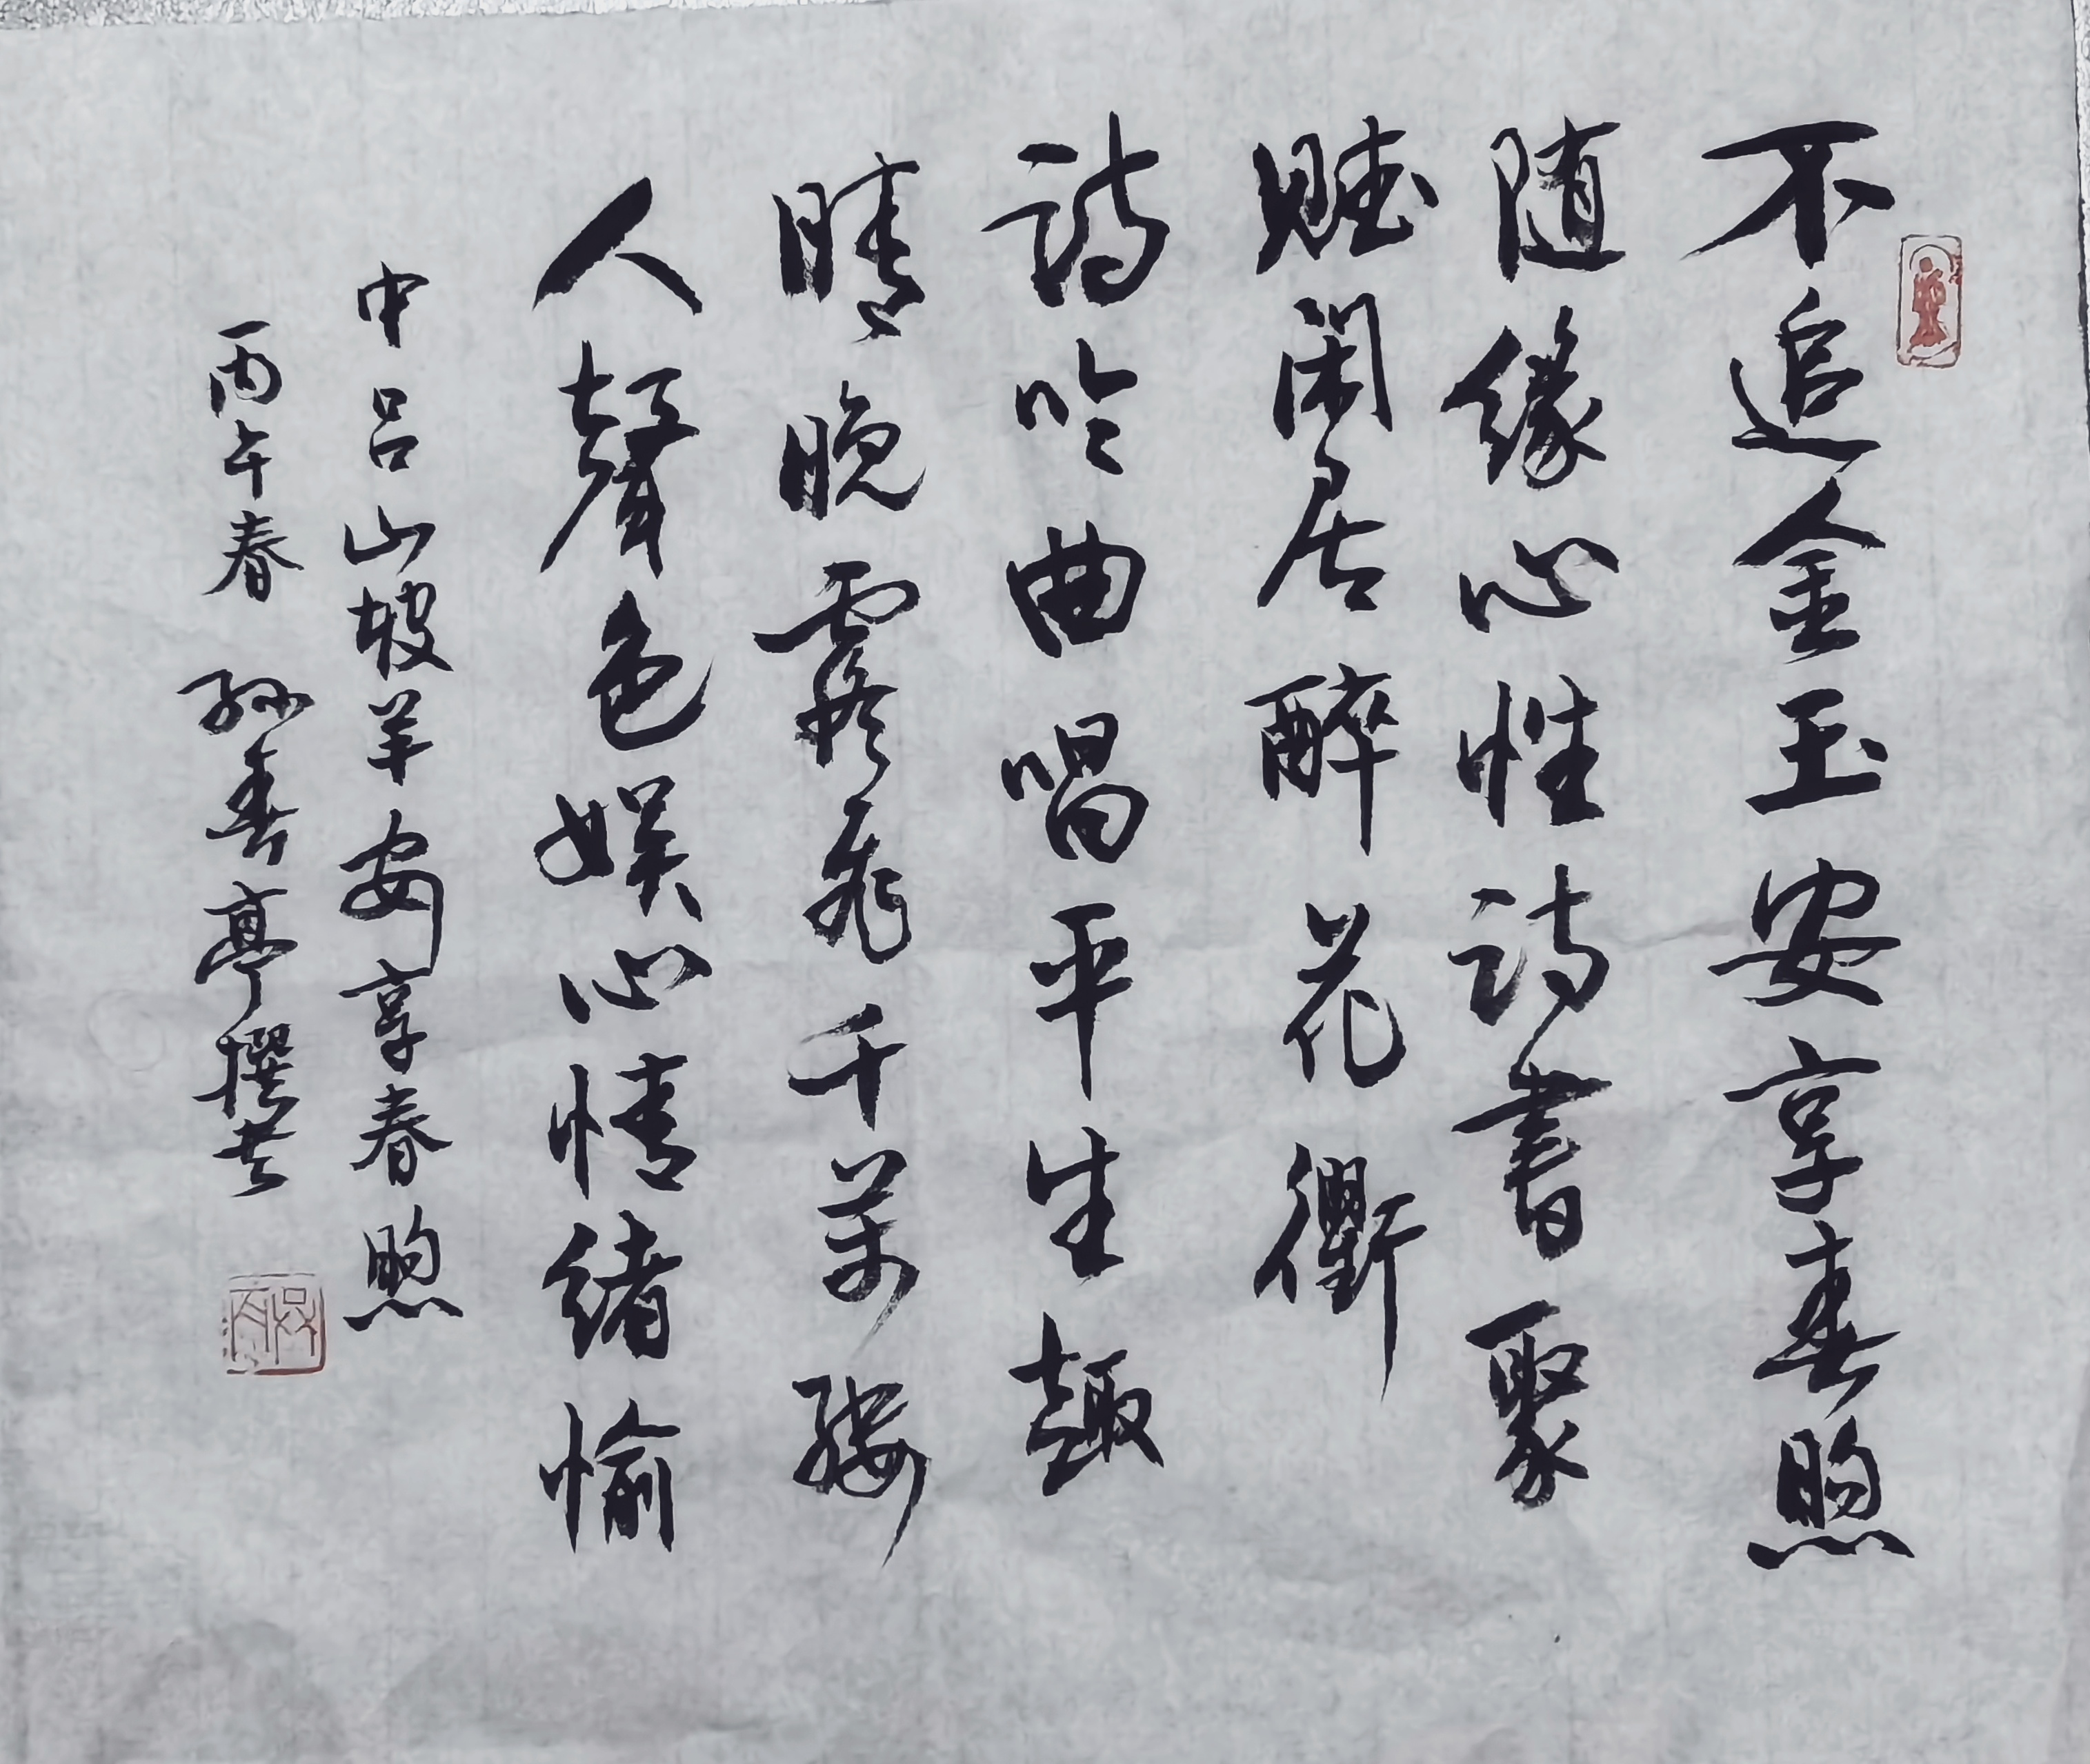 不追金玉安享春煦
随缘心性诗書聚
赋闲居醉花衢
诗吟曲唱平生趣
晴晚霞飛千萬缕
人聲色娱心情绪愉
中吕山坡羊安享春煦
丙午春 孙春亭撰书